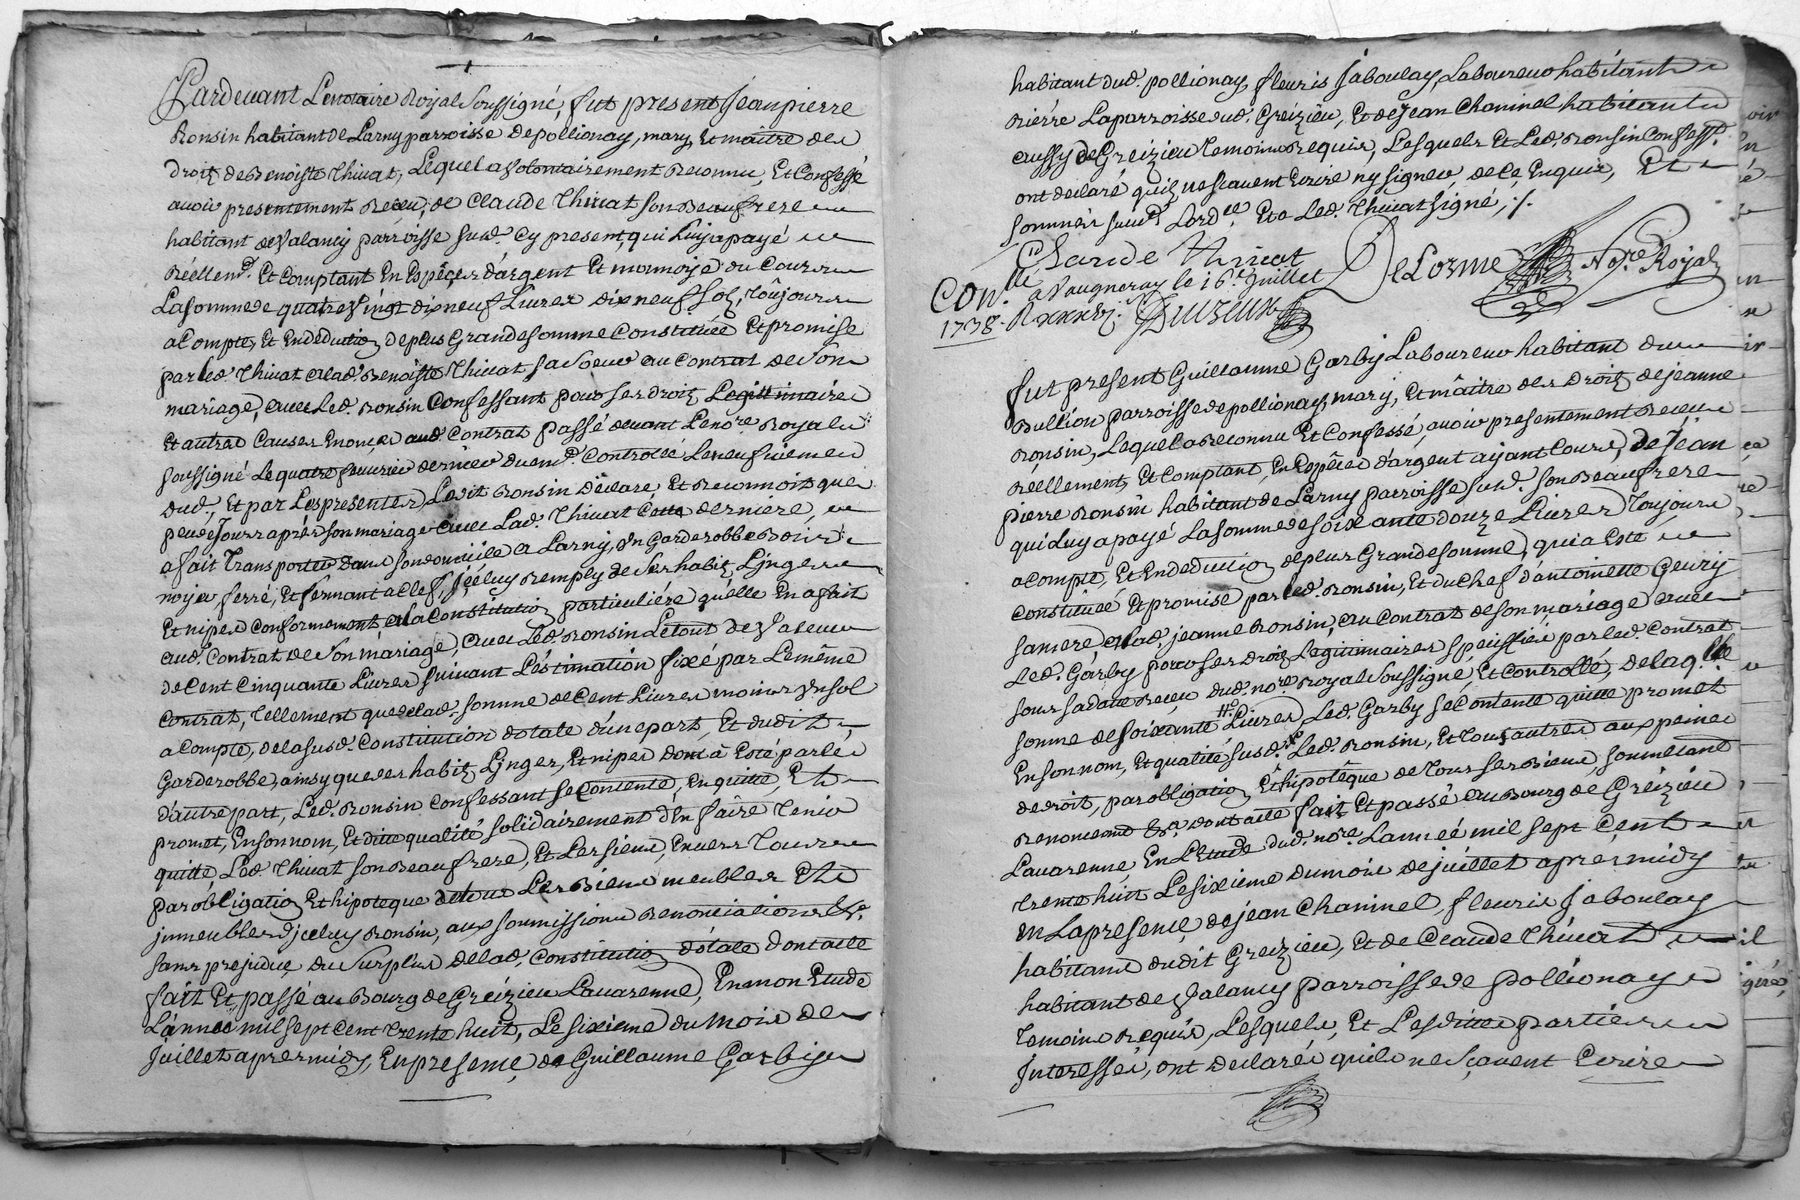 Pardevant Lenotaire Royal Soussigné, fut present Jeanpierre
Ronsin habitant de Larny parroisse depollionay, mary, Et maître des
droiz de Benoiste Thivat, Lequel a volontairement Reconnu, Et Confessé
avoir presentement Receu, de Claude Thivat son Beaufrere
habitant de Valancy parroisse susd. Cy present, qui Luy a payé
Réellemt. Et Comptant En Espèces d'argent Et monnoye du Cours
La somme de quatre Vingt dixneuf Livres dixneuf sols, Toûjours
a Compte, Et Endeduction deplus Grande somme Constituée Et promise
par led. Thivat a lad. Benoiste Thivat sa soeur au Contrat de son
mariage, avec Led. Ronsin Confessant pour ses droiz Legittimaires
Et autres Causes Enoncés aud. Contrat passé devant Le nore. Royal
soussigné Le quatre fevrier dernier duemt. Controllé Le neufvieme
dud., Et par Les presentes Ledit Ronsin Déclare, Et Reconnoit que
peu de Jours aprés son mariage avec Lad. Thivat Cette derniere,
a fait Transporter dans son domicile a Larny, Un Garderobbe Bois
noyer ferré, Et fermant a Clef, Jceluy Remply de ses habiz, Linges
Et nipes Conformement, a la Constitution particuliére qu'elle En a fait
aud. Contrat de son mariage, avec Led. Ronsin Letout de Valeur
de Cent Cinquante Livres suivant L'estimation fixé par Le même
Contrat, Tellement que de lad. somme de Cent Livres moins Un sol
a Compte, de la susd. Constitution dotale d'une part, Et dudit
Garderobbe, ainsy que des habiz Linges, Et nipes dont a Esté parlé
d'autre part, Led. Ronsin Confessant se Contente, En quitte, Et
promet, En son nom, Et ditte qualité solidairement d'En faire Tenir
quitte, Led. Thivat son Beaufrere, Et Les siens, Envers Tous
par obligation Et hipoteque de tous Les Biens meubles Et
jmmeubles d'jceluy Ronsin, aux soumissions Renonciations &c.
sans prejudice du surplus de lad. Constitution dotale dont acte
fait Et passé au Bourg de Greizieu Lavarenne, En mon Etude
L'année mil sept Cent Trente huit, Le sixieme du mois de
Juillet apres midy, En presence de Guillaume Garby
habitant dud. pollionay, fleuris Jaboulay, Laboureur habitant
Riérre La parroisse dud. Greizieu, Et de Jean Chaninel habitant
aussy de Greizieu Temoins Requis, Lesquels Et Led. Ronsin Confesst.
ont declaré qu'ils ne sçavent Ecrire ny signer, de Ce Enquis, Et
sommés suivt. Lordce. Et Led. Thivat signé, ./.
Claude Thivat
DeLorme Nore. Royal
Conllé. a Vaugneray le 16e. Juillet
1738. R
fut present Guillaume Garby Laboureur habitant du
Bullion parroisse de pollionay, mary, Et maître des Droiz de Jeanne
Ronsin, Lequel a Reconnu Et Confessé, avoir presentement Receu
Réellement, Et Comptant, En Espêces d'argent ayant Cours, de Jean
pierre Ronsin habitant de Larny parroisse susd. son Beaufrere
qui Luy a payé La somme de soixante douze Livres Toujours
a Compte, Et Endeduction deplus Grande somme, qui a Esté
Constituée Et promise par led. Ronsin, Et du Chef d'antoinette Gevry
sa mere a lad. jeanne Ronsin, au Contrat de son mariage avec
Led. Garby pour ses Droiz Lagitimaires speciffiés par led. Contrat
sous sa date Receu dud. nore. Royal soussigné, Et Controllé, de laqlle.
somme de soixante Livres, Led. Garby se Contente quitte promet
En son nom, Et qualité susd. Led. Ronsin, Et Tous autres aux peines
de droit, par obligation Et hipotêque de Tous ses Biens, soumettant
Renonceant &a dont acte fait Et passé au Bourg de Greizieu
Lavarenne, En L'Etude dud. nore. L'année mil sept Cent
Trente huit Le sixieme du mois de juillet apres midy
En La presence de jean Chaninel, fleuris Jaboulay
habitans dudit Greizieu, Et de Claude Thivat
habitant de Valancy parroisse de pollionay
Temoins Requis, Lesquels, Et Les dittes parties
Interessés, ont Declarée qu'ils ne sçavent Ecrire